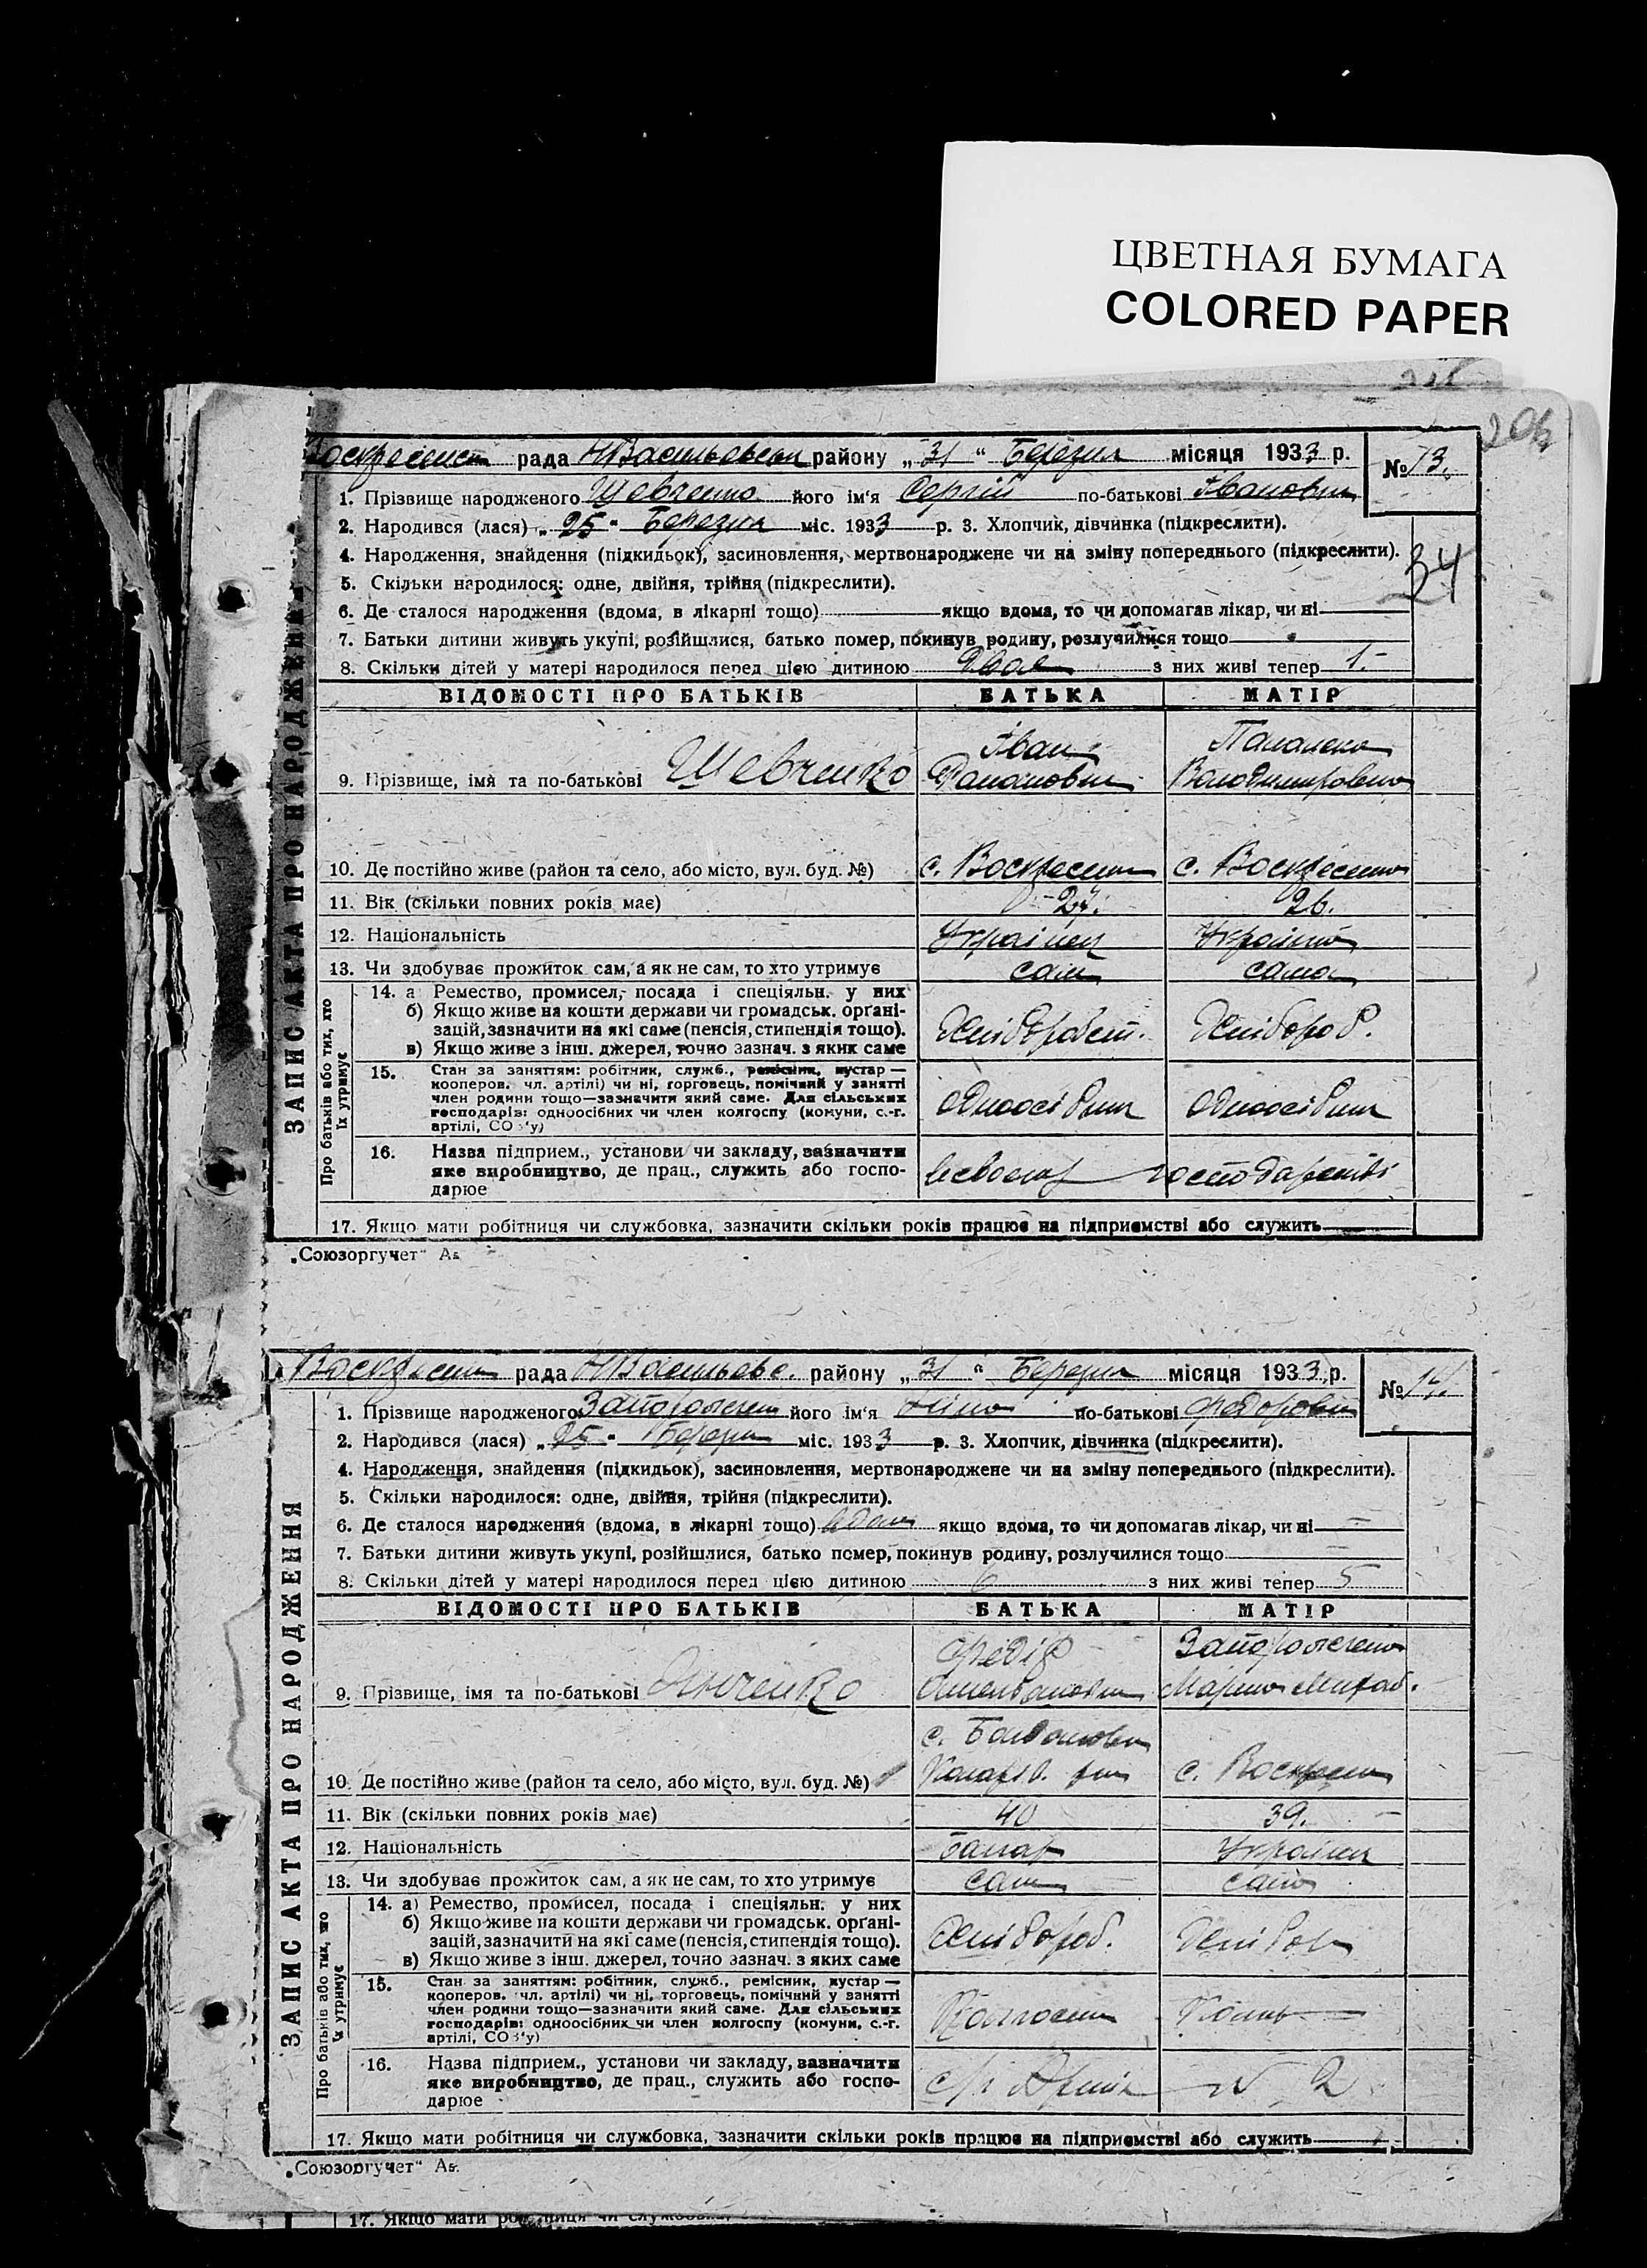 ЦВЕТНАЯ БУМАГА
COLORED PAPER
ЗАПИС АКТА ПРО НАРОДЖЕННЯ
рада району „31“ Березня місяця 1933 р. № 13.
1. Прізвище народженого Шевченко його ім'я Сергій по-батькові Іванович
34
2. Народився (лася) „25“ Березня міс. 1933 р. 3. Хлопчик, дівчинка (підкреслити).
4. Народження, знайдення (підкидьок), засиновлення, мертвонароджене чи на зміну попереднього (підкреслити).
5. Скільки народилося: одне, двійня, трійня (підкреслити).
6. Де сталося народження (вдома, в лікарні тощо) якщо вдома, то чи допомагав лікар, чи ні
7. Батьки дитини живуть укупі, розійшлися, батько помер, покинув родину, розлучилися тощо
8. Скільки дітей у матері народилося перед цією дитиною двоє з них живі тепер 1.
ВІДОМОСТІ ПРО БАТЬКІВ БАТЬКА МАТІР
9. Прізвище, імя та по-батькові Шевченко Іван Володимировна
10. Де постійно живе (район та село, або місто, вул. буд. №) с. с.
11. Вік (скільки повних років має) 27. 26.
12. Національність Українец Українка
13. Чи здобуває прожиток сам, а як не сам, то хто утримує сам сама
Про батьків або тих, хто їх утримує
14. а Ремество, промисел, посада і спеціяльн. у них
б) Якщо живе на кошти держави чи громадськ. орґані-
зацій, зазначити на які саме (пенсія, стипендія тощо).
в) Якщо живе з інш. джерел, точно зазнач. з яких саме
Хліборобст. Хлібороб.
15. Стан за заняттям: робітник, служб., ремісник, кустар —
кооперов. чл. артілі) чи ні, торговець, помічний у занятті
член родини тощо—зазначити який саме. Для сільських
господарів: одноосібних чи член колгоспу (комуни, с.-г.
артілі, СОЗ'у)
одноосібник одноосібник
16. Назва підприєм., установи чи закладу, зазначити
яке виробництво, де прац., служить або госпо-
дарює
господарстві
17. Якщо мати робітниця чи службовка, зазначити скільки років працює на підприємстві або служить
„Союзоргучет“
ЗАПИС АКТА ПРО НАРОДЖЕННЯ
рада району „31“ Березня місяця 1933 р. № 14.
1. Прізвище народженого його ім'я по-батькові
2. Народився (лася) „25“ Березня міс. 1933 р. 3. Хлопчик, дівчинка (підкреслити).
4. Народження, знайдення (підкидьок), засиновлення, мертвонароджене чи на зміну попереднього (підкреслити).
5. Скільки народилося: одне, двійня, трійня (підкреслити).
6. Де сталося народження (вдома, в лікарні тощо) вдома якщо вдома, то чи допомагав лікар, чи ні
7. Батьки дитини живуть укупі, розійшлися, батько помер, покинув родину, розлучилися тощо
8. Скільки дітей у матері народилося перед цією дитиною 6 з них живі тепер 5
ВІДОМОСТІ ПРО БАТЬКІВ БАТЬКА МАТІР
9. Прізвище, імя та по-батькові Янченко Федір
10. Де постійно живе (район та село, або місто, вул. буд. №) с. с.
11. Вік (скільки повних років має) 40 39.
12. Національність
13. Чи здобуває прожиток сам, а як не сам, то хто утримує сам сама
Про батьків або тих, хто їх утримує
14. а) Ремество, промисел, посада і спеціяльн. у них
б) Якщо живе на кошти держави чи громадськ. орґані-
зацій, зазначити на які саме (пенсія, стипендія тощо).
в) Якщо живе з інш. джерел, точно зазнач. з яких саме
Хлібороб.
15. Стан за заняттям: робітник, служб., ремісник, кустар —
кооперов. чл. артілі) чи ні, торговець, помічний у занятті
член родини тощо—зазначити який саме. Для сільських
господарів: одноосібних чи член колгоспу (комуни, с.-г.
артілі, СОЗ'у)
16. Назва підприєм., установи чи закладу, зазначити
яке виробництво, де прац., служить або госпо-
дарює
17. Якщо мати робітниця чи службовка, зазначити скільки років працює на підприємстві або служить
„Союзоргучет“
17. Якщо мати